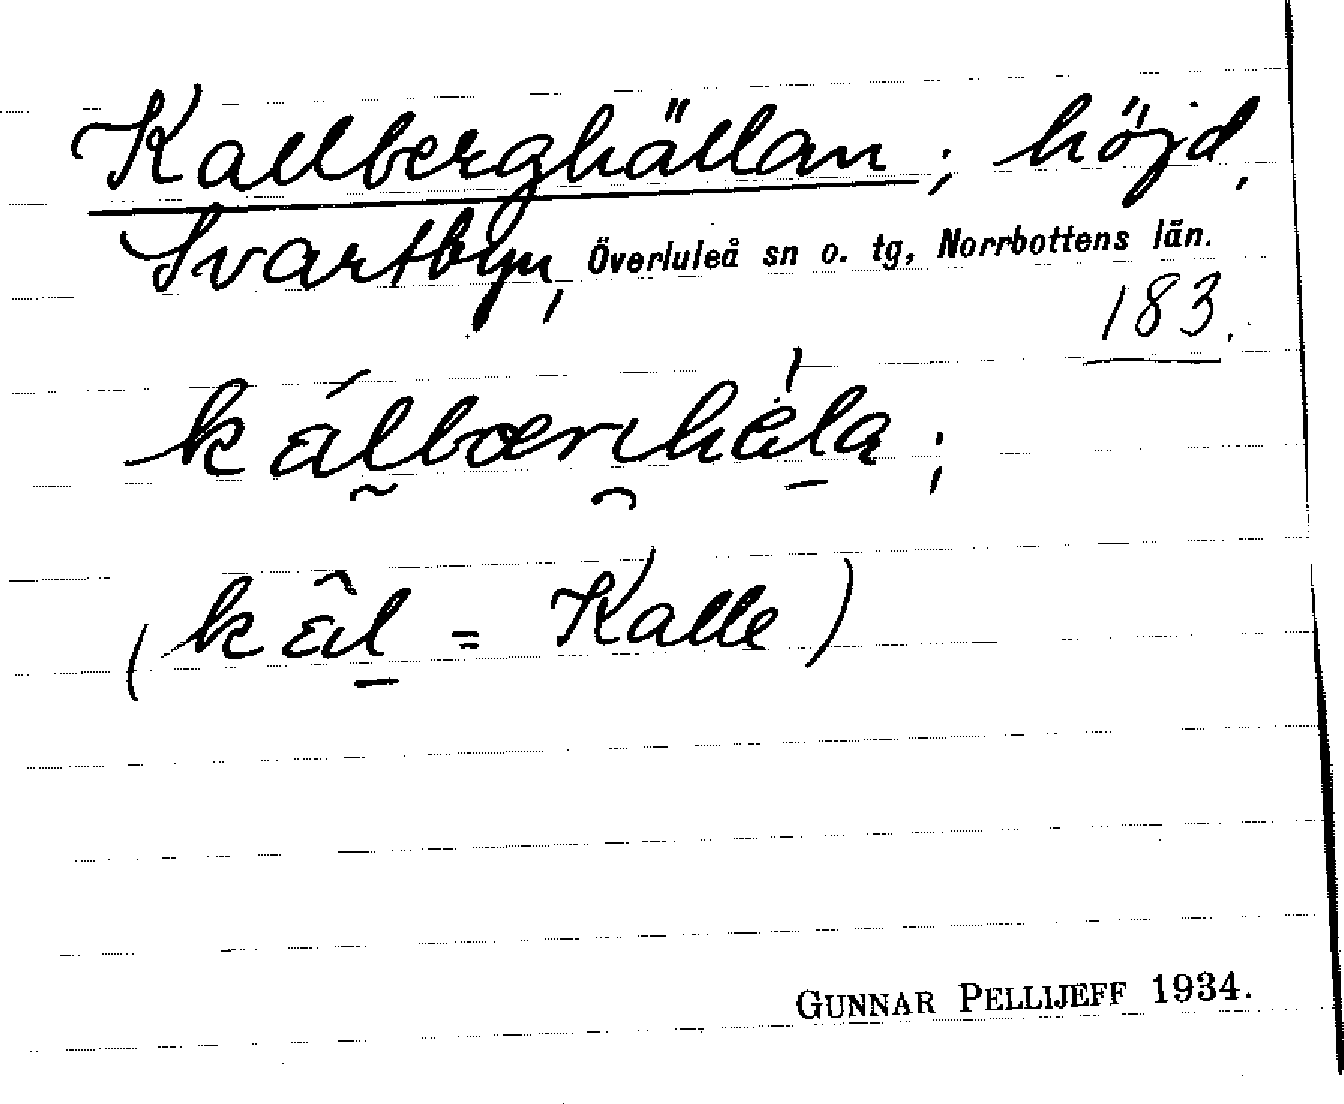 Kallberghällan; höjd,
Svartbyn, Överluleå sn o. tg, Norrbottens län.
183.
kálbærhéla;
(kâl = Kalle)
GUNNAR PELLIJEFF 1934.